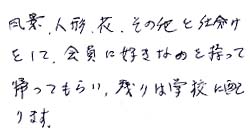 風景、人形、花、その他と仕分け
をして、会員に好きなのを持って
帰ってもらい、残りは学校に配
ります。